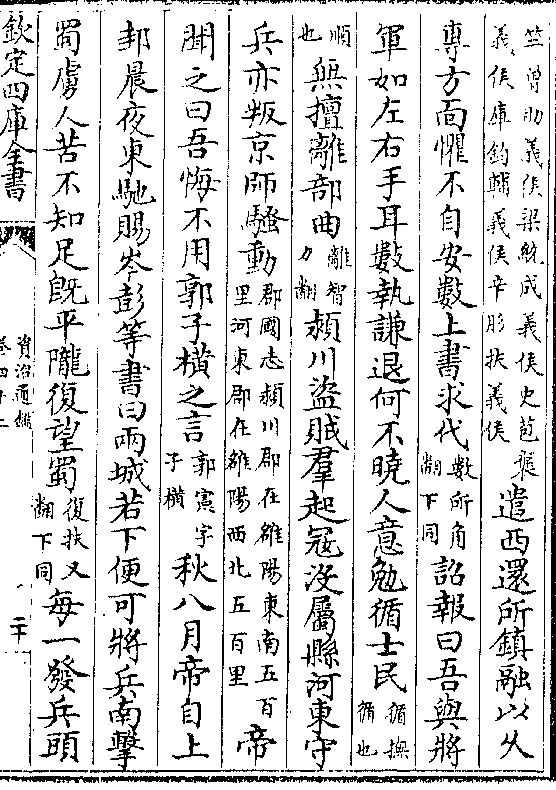 竺曾助義侯梁統成義侯史苞襃
義侯庫鈞輔義侯辛肜扶義侯
遣西還所鎮融以久
專方面懼不自安數上書求代
數所角
翻下同
詔報曰吾與將
軍如左右手耳數執謙退何不曉人意勉循士民
循撫
循也
順
也
無擅離部曲
離智
力翻
潁川盜賊羣起寇沒屬縣河東守
兵亦叛京師騷動
郡國志潁川郡在雒陽東南五百
里河東郡在雒陽西北五百里
帝
聞之曰吾悔不用郭子橫之言
郭憲字
子橫
秋八月帝自上
邽晨夜東馳賜岑彭等書曰兩城若下便可將兵南擊
蜀虜人苦不知足既平隴復望蜀
復扶又
翻下同
每一發兵頭
欽定四庫全書
資治通鑑
卷四十二
二十